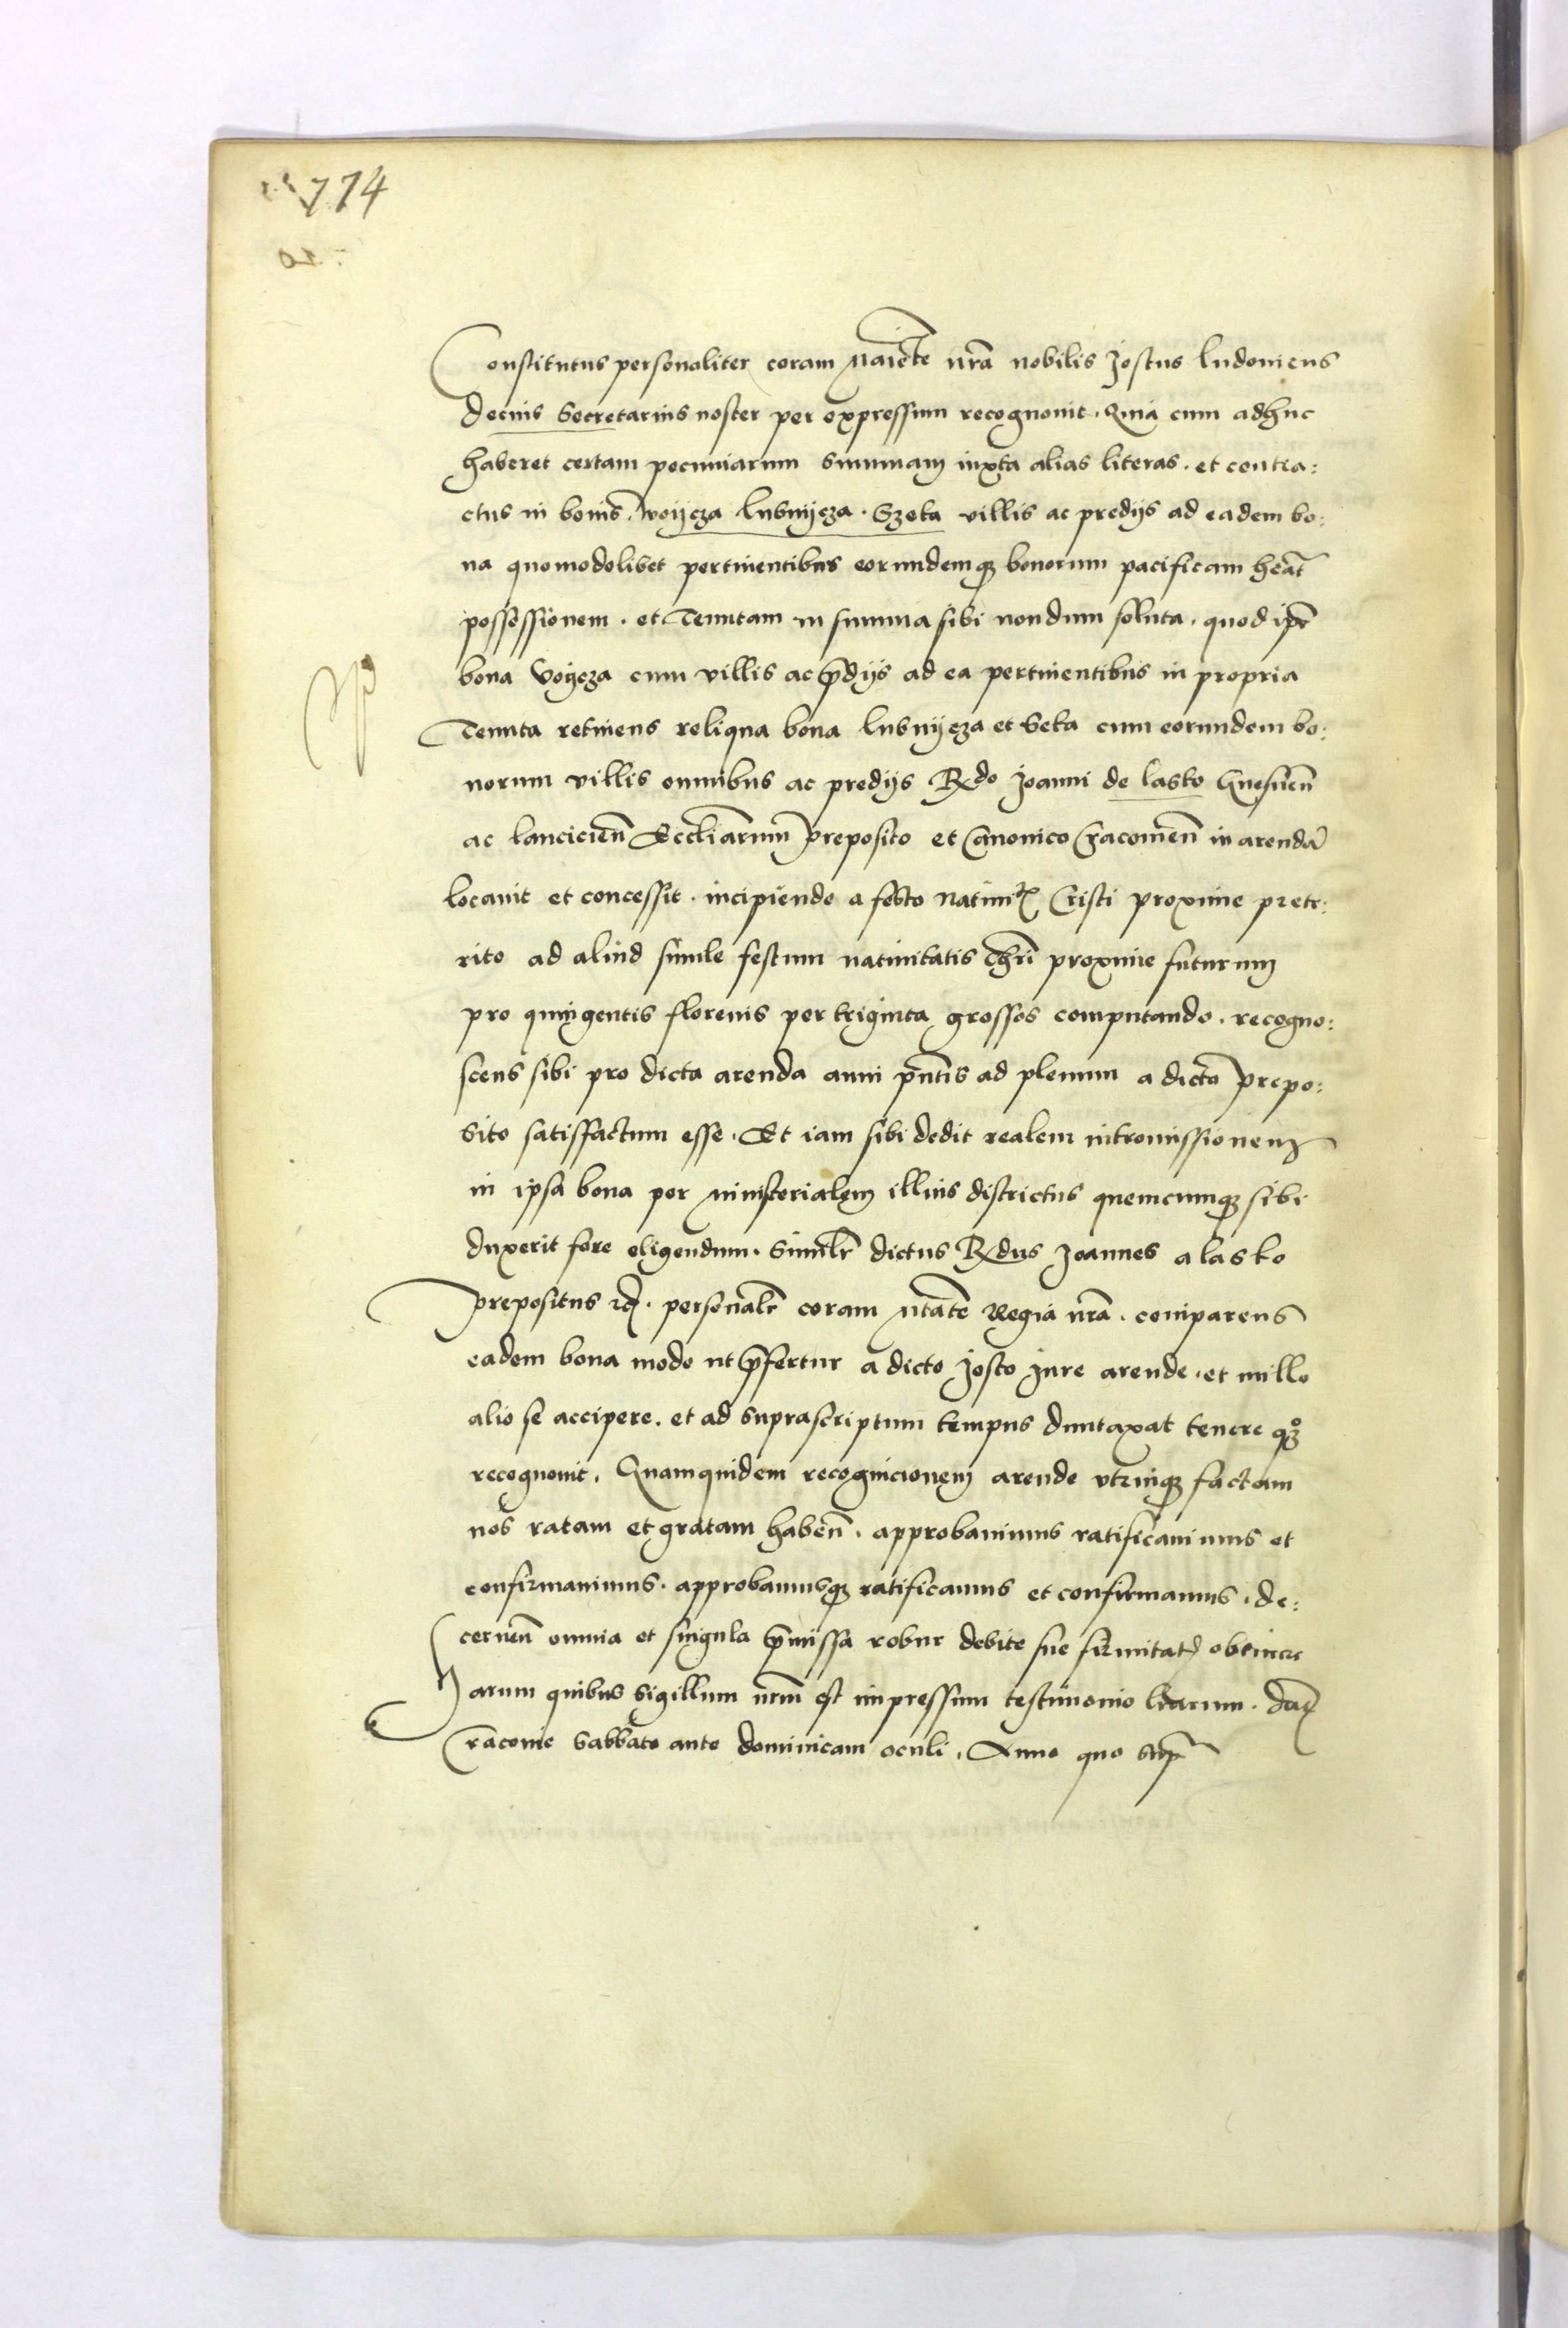 774
Constitutus personaliter coram Maiestte nrã nobilis Jostus ludovicus
decius Secretarius noster per expressum recognovit. Quia cum adhuc
haberet certam pecuniarum summam iuxta alias literas. et contra:
ctus in bonis. woijcza lubnijcza. Szeka villis ac predijs ad eadem bo:
na quomodolibet pertinentibus eorundemq3 bonorum pacificam heãt
possessionem. et Tenutam in summa sibi nondum soluta. quod ipẽ
bona Voijcza cum villis ac p̃dijs ad ea pertinentibus in propria
Tenuta retinens reliqua bona lubnijcza et Seka cum eorundem bo:
norum villis omnibus ac predijs Rdo Joanni de lasko Gnesneñ
ac lancicieñ Eccliarum preposito et Canonico Cracovieñ in arendã
locavit et concessit. incipiendo a festo Nativitꝭ Cristi proxime prete:
rito ad aliud simile festum nativitatis Chri proxime futurum
pro quingentis florenis per triginta grossos computando. recogno:
scens sibi pro dicta arenda anni pñtis ad plenum a dicto prepo:
sito satisfactum esse. Et iam sibi dedit realem intromissionem
in ipsa bona per ministerialem illius districtus quemcumq3 sibi
duxerit fore eligendum. Similr dictus Rdus Joannes a lasko
prepositus rc. personalr coram Mtate Regia nrã. comparens
eadem bona modo ut p̃fertur a dicto Josto Jure arende. et nullo
alio se accipere. et ad suprascriptum tempus duntaxat tenere q3
recognovit. Quamquidem recognicionem arende utrinq3 factam
nos ratam et gratam habeñ. approbavimus ratificavimus et
confirmavimus. approbamusq3 ratificamus et confirmamus. de:
cerneñ omnia et singula p̃missa robur debite sue firmitatꝭ obtinere
Harum quibus Sigillum nrm est impressum testimonio lrarum. Dat
Cracovie Sabbato ante dominicam oculi. Anno quo supr